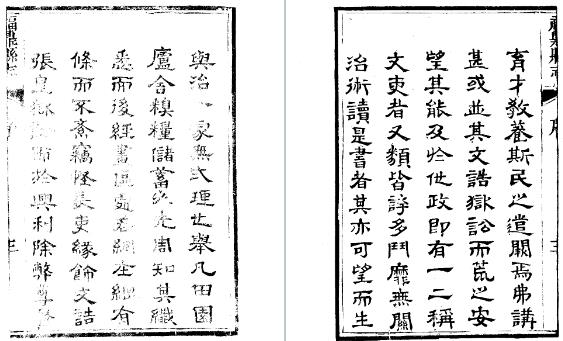 福泉縣志
序
三
育才教養斯民之道闕焉弗講
甚或並其文誥獄訟而荒之安
望其能及於世政即有一二稱
文吏者又類皆誇多鬥靡無關
治術讀是書者其亦可望而生
與治一家無弍理也舉凡田園
廬舍糗糧儲蓄必先周知其纖
悉而後經畫區處若網在綱有
條而不紊竊怪長吏緣飾文誥
張皇於興利除弊
三